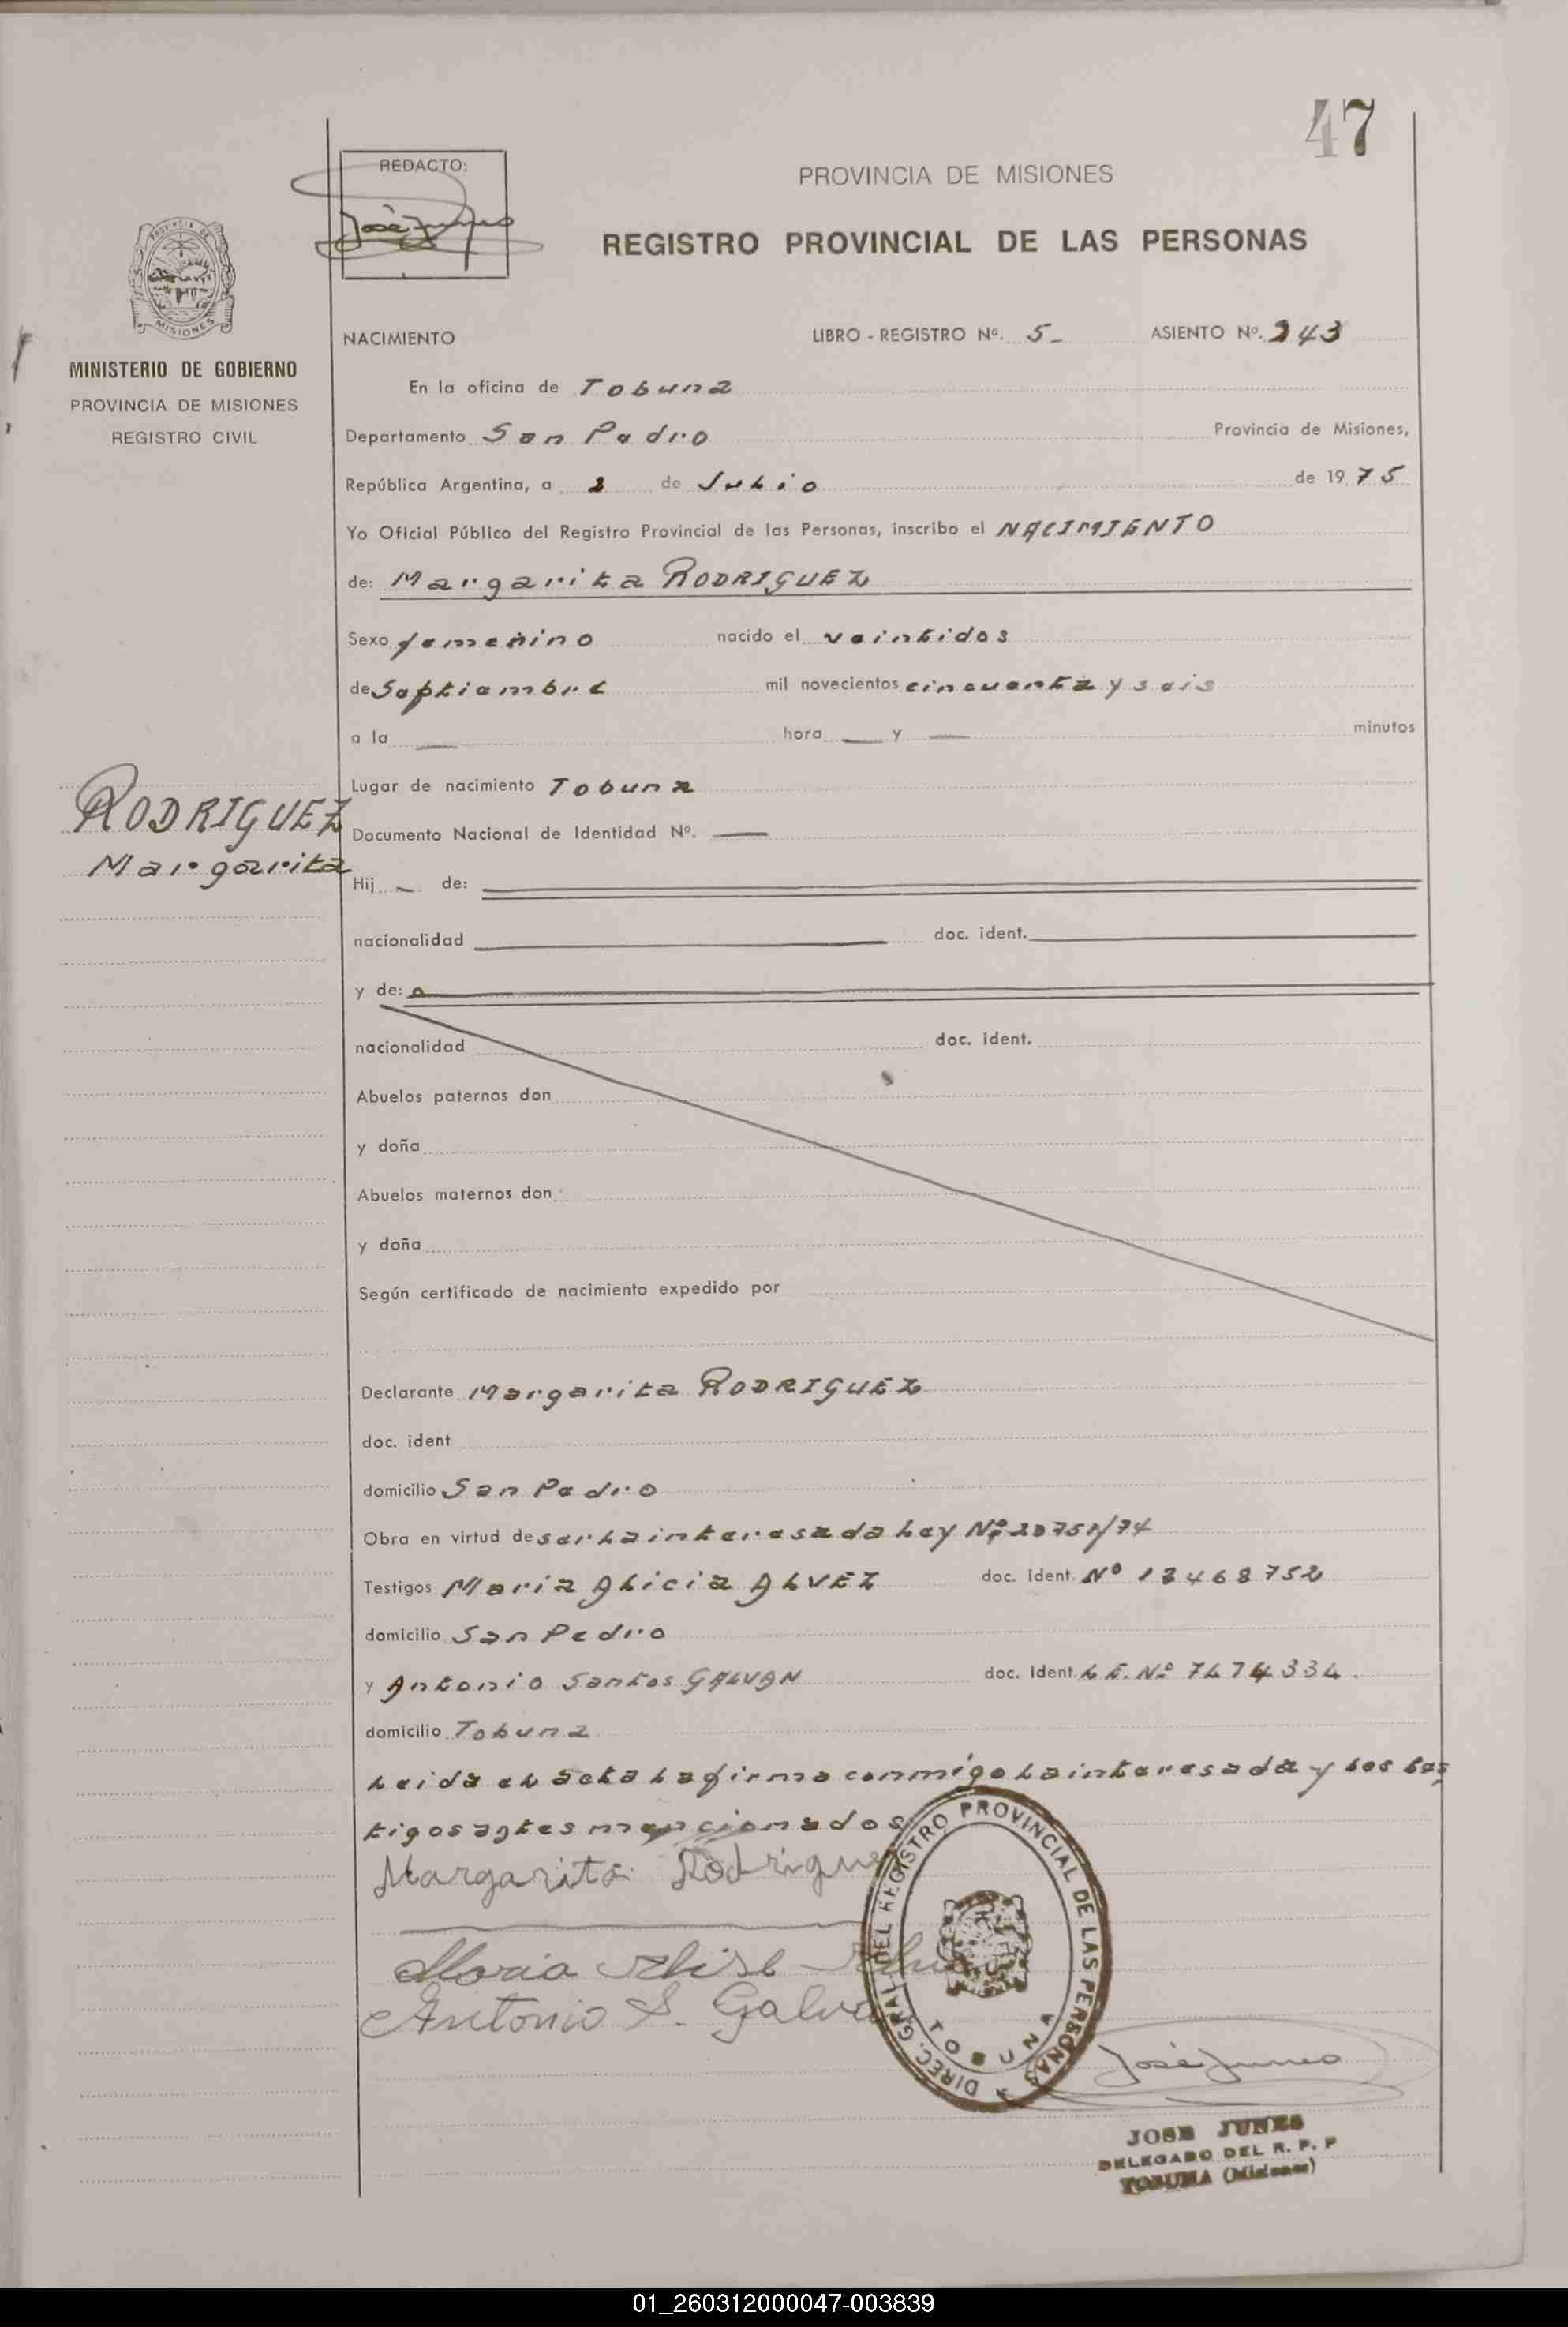 47
REDACTO:
José Junes
PROVINCIA DE MISIONES
REGISTRO PROVINCIAL DE LAS PERSONAS
PROVINCIA DE
MISIONES
MINISTERIO DE GOBIERNO
PROVINCIA DE MISIONES
REGISTRO CIVIL
NACIMIENTO LIBRO - REGISTRO Nº. 5- ASIENTO Nº. 243
En la oficina de Tobuna
Departamento San Pedro Provincia de Misiones,
República Argentina, a de Julio de 1975
Yo Oficial Público del Registro Provincial de las Personas, inscribo el NACIMIENTO
de: Margarita RODRIGUEZ
Sexo femenino nacido el veintidos
de Septiembre mil novecientos cincuenta y seis
a la — hora — y — minutos
Lugar de nacimiento Tobuna
RODRIGUEZ
Margarita
Documento Nacional de Identidad Nº. —
Hij - de:
nacionalidad doc. ident.
y de:
nacionalidad doc. ident.
Abuelos paternos don
y doña
Abuelos maternos don
y doña
Según certificado de nacimiento expedido por
Declarante Margarita RODRIGUEZ
doc. ident
domicilio San Pedro
Obra en virtud de ser la interesada Ley Nº 20751/74
Testigos Maria Alicia ALVEZ doc. Ident. Nº 13468752
domicilio San Pedro
y Antonio Santos GALVAN doc. Ident. L.E. Nº 7474334.
domicilio Tobuna
Leida el acta la firma conmigo la interesada y los tes-
tigos antes mencionados
Margarita Rodrigue
Maria
Antonio S. Galva
DIREC. GRAL. DEL REGISTRO PROVINCIAL DE LAS PERSONAS
TOBUNA
José Junes
JOSE JUNES
DELEGADO DEL R. P. P
TOBUNA (Misiones)
01_260312000047-003839